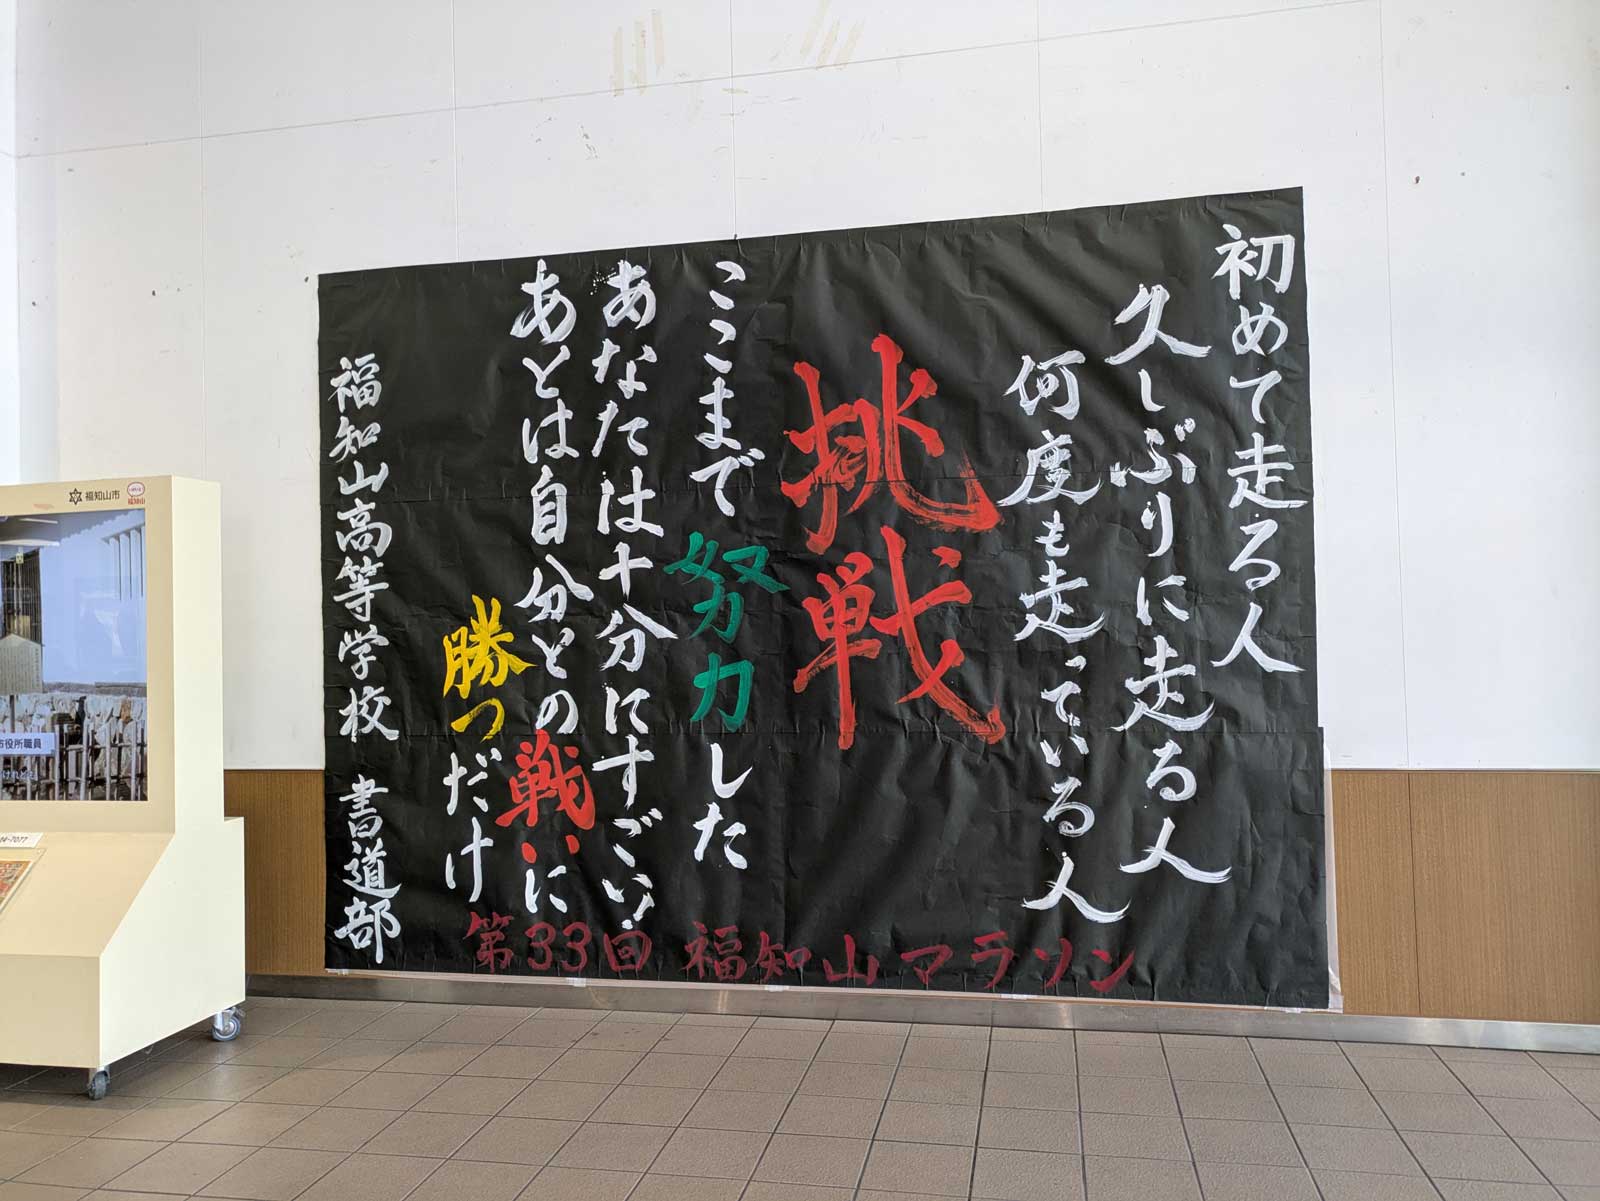 初めて走る人
久しぶりに走る人
何度も走っている人
挑戦
ここまで努力した
あなたは十分にすごい!
あとは自分との戦いに
勝つだけ
福知山高等学校 書道部
第33回 福知山マラソン
福知山市
市役所職員
けれども